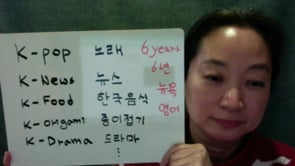 K-pop 노래 6 years
6년
K-News 뉴스 뉴욕
K-Food 한국음식 영어
K-Origami 종이접기
K-Drama 드라마
⋮